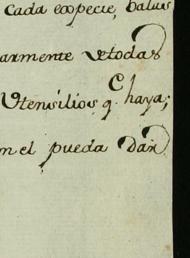 Cada expecie,
armente vtodas
Vtensilios q.e haya;
n el pueda Dar